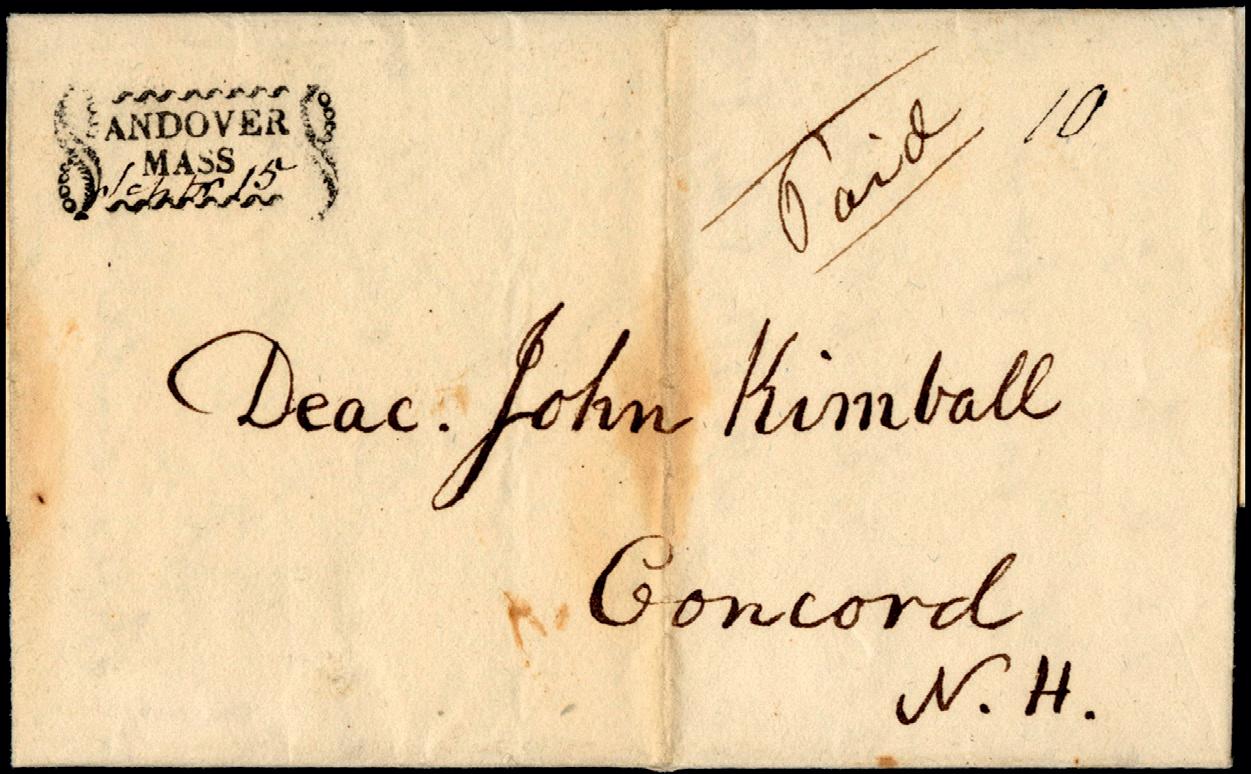 ANDOVER
MASS
Septr. 15
Paid 10
Deac. John Kimball
Concord
N. H.